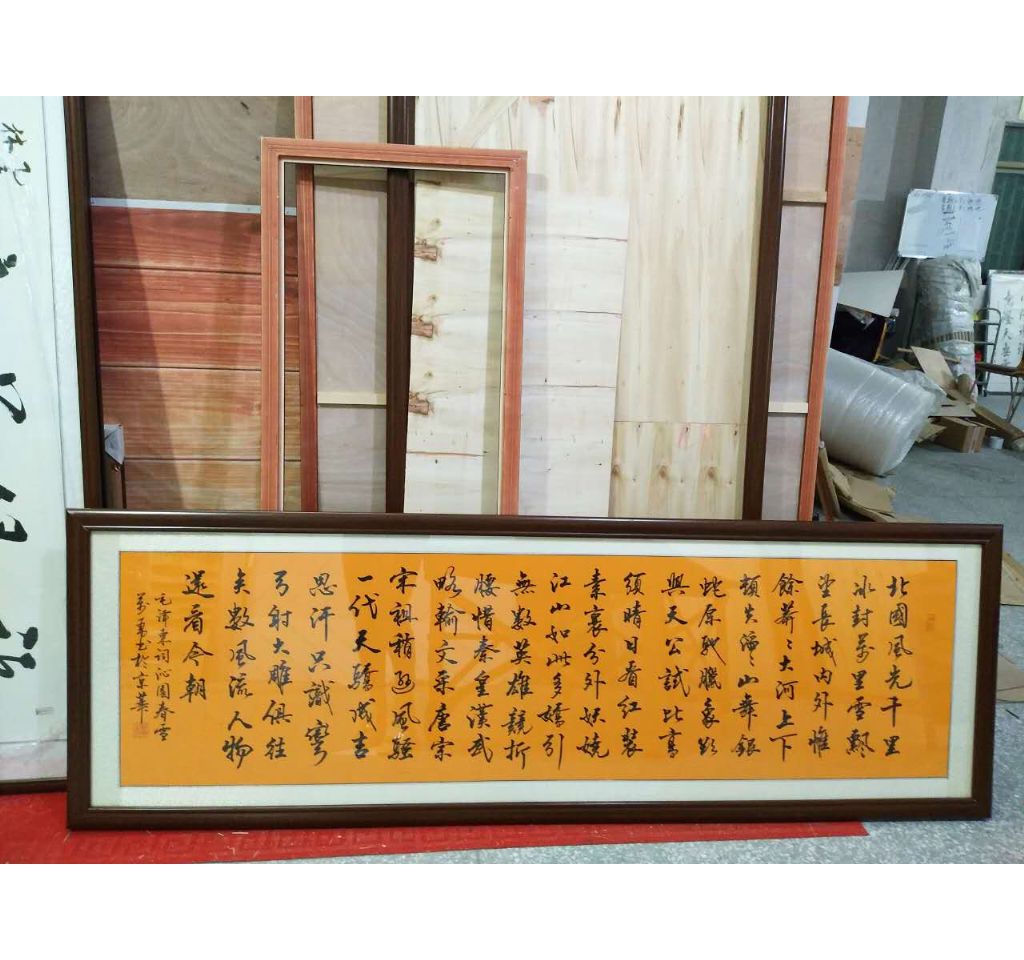 北國風光千里
冰封萬里雪飄
望長城内外惟
餘莽〻大河上下
頓失滔〻山舞銀
蛇原馳臘象欲
與天公試比高
須晴日看紅裝
素裹分外妖嬈
江山如此多嬌引
無数英雄競折
腰惜秦皇漢武
略輸文采唐宗
宋祖稍遜風騷
一代天驕成吉
思汗只識彎
弓射大雕俱往
矣數風流人物
還看今朝
毛澤東詞沁園春雪